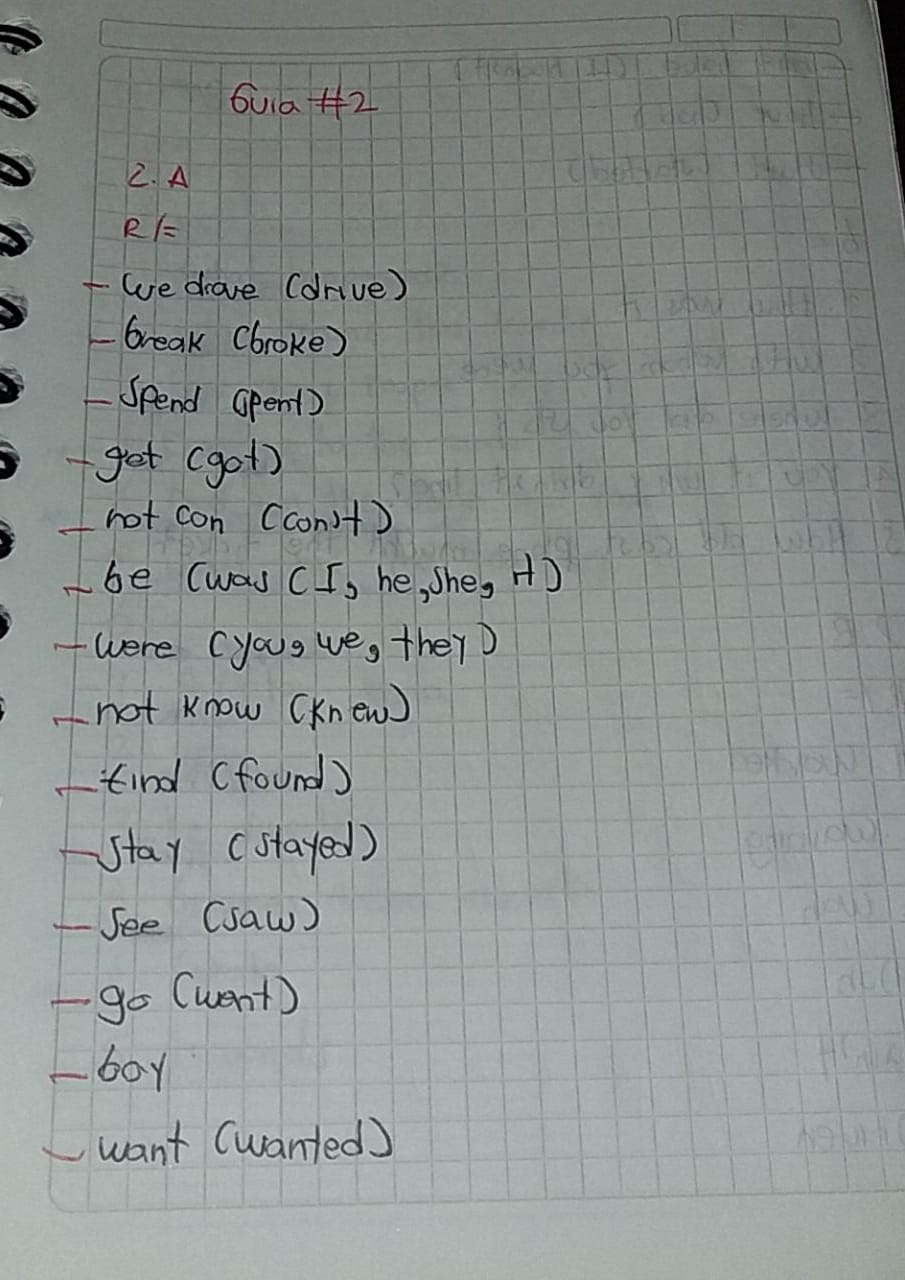 Guia #2
2. A
R/=
- We drove (drive)
- break (broke)
- Spend (spent)
- get (got)
- not con (con't)
- be (was (I, he, she, it)
- were (you, we, they)
- not know (knew)
- find (found)
- Stay (stayed)
- See (saw)
- go (went)
- boy
- want (wanted)